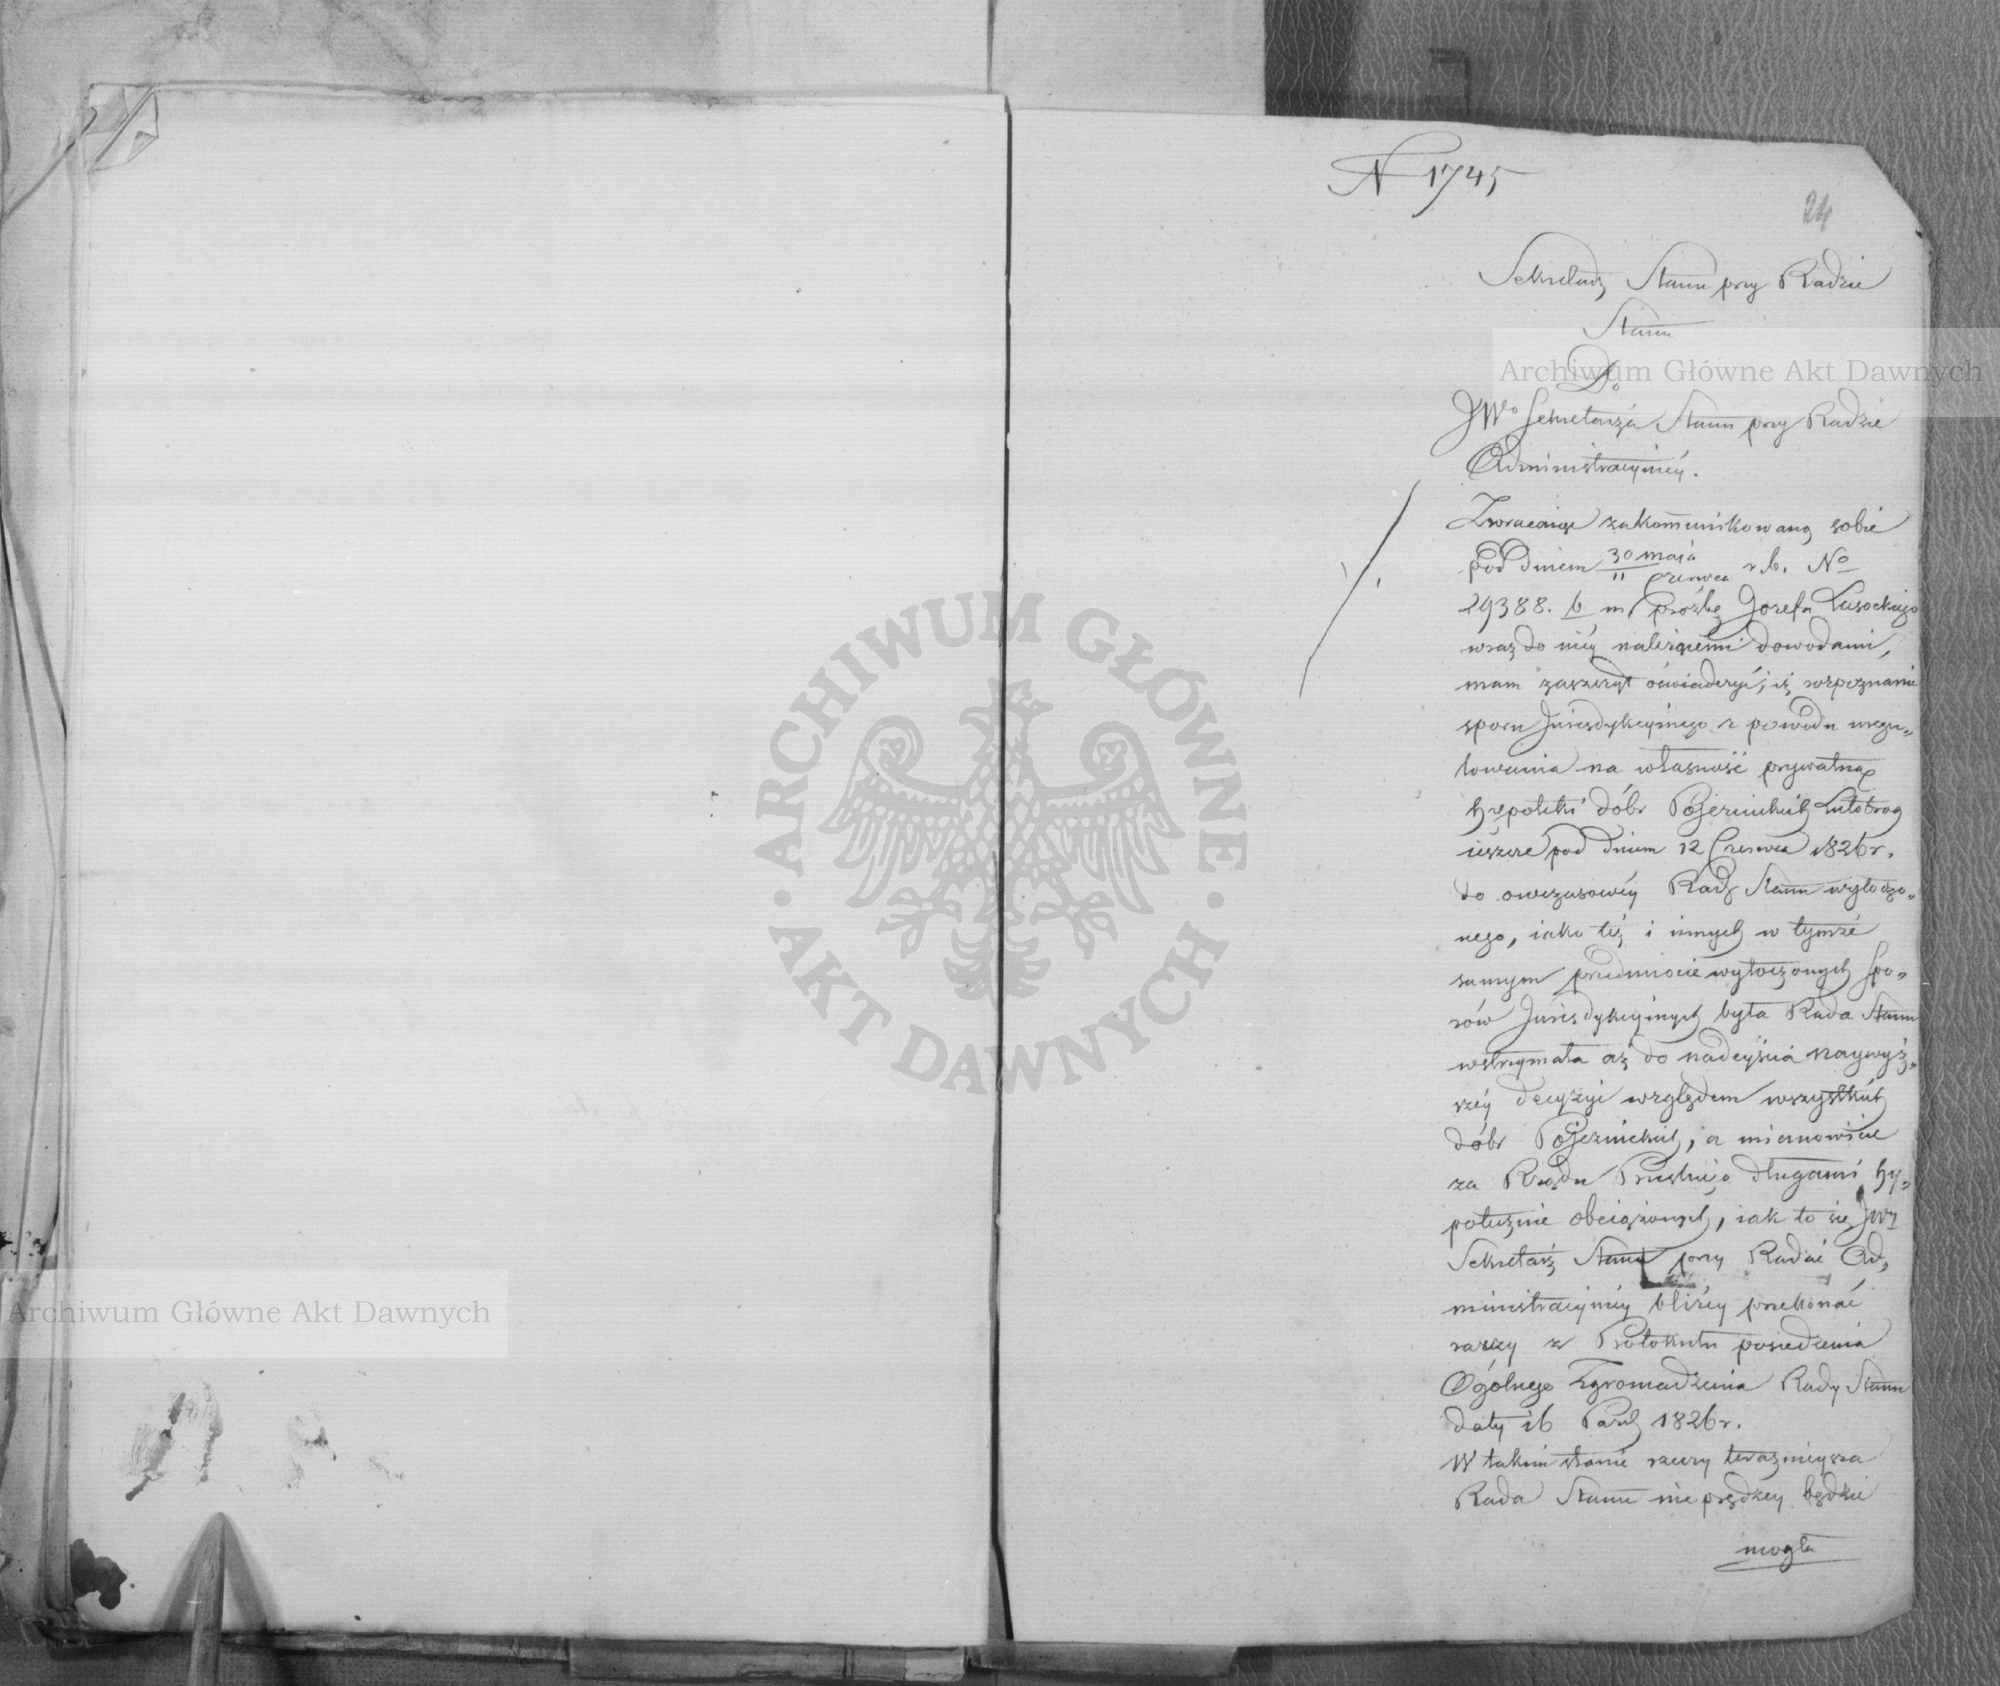 N 1745
24
Sekretarz Stanu przy Radzie
Stanu
Do
JWo Sekretarza Stanu przy Radzie
Administracyiney.
Zwracaiąc zakommunikowaną sobie
pod dniem 30 maja / 11 Czerwca r. b. No
29388. b m prozbę Jozefa Lasockiego
wraz do niey należącemi dowodami,
mam zaszczyt oświadczyć, iż rozpoznanie
sporu Jurisdykcyinego z powodu uregu„
lowania na własność prywatną
hypoteki dóbr Pojezuickich Lutobrog
ieszcze pod dniem 12 Czerwca 1826 r.
do owczasowéy Rady Stanu wytoczo„
nego, iako też i innych w tymże
samym przedmiocie wytoczonych Spo„
rów Jurisdykcyinych była Rada Stanu
wstrzymała aż do nadeyścia Naywyż„
széy decyzyi względem wszystkich
dóbr Pojezuickich, a mianowicie
za Rządu Pruskiego długami hy„
potecznie obciążonych, iak to się JWy
Sekretarz Stanu przy Radzie Ad„
ministracyiney bliżey przekonać
raczy z Protokułu posiedzenia
Ogólnego Zgromadzenia Rady Stanu
daty 16 Paźd 1826 r.
W takim stanie rzeczy teraznieysza
Rada Stanu nie prędzey będzie
mogła
Archiwum Główne Akt Dawnych
Archiwum Główne Akt Dawnych
ARCHIWUM GŁÓWNE
AKT DAWNYCH